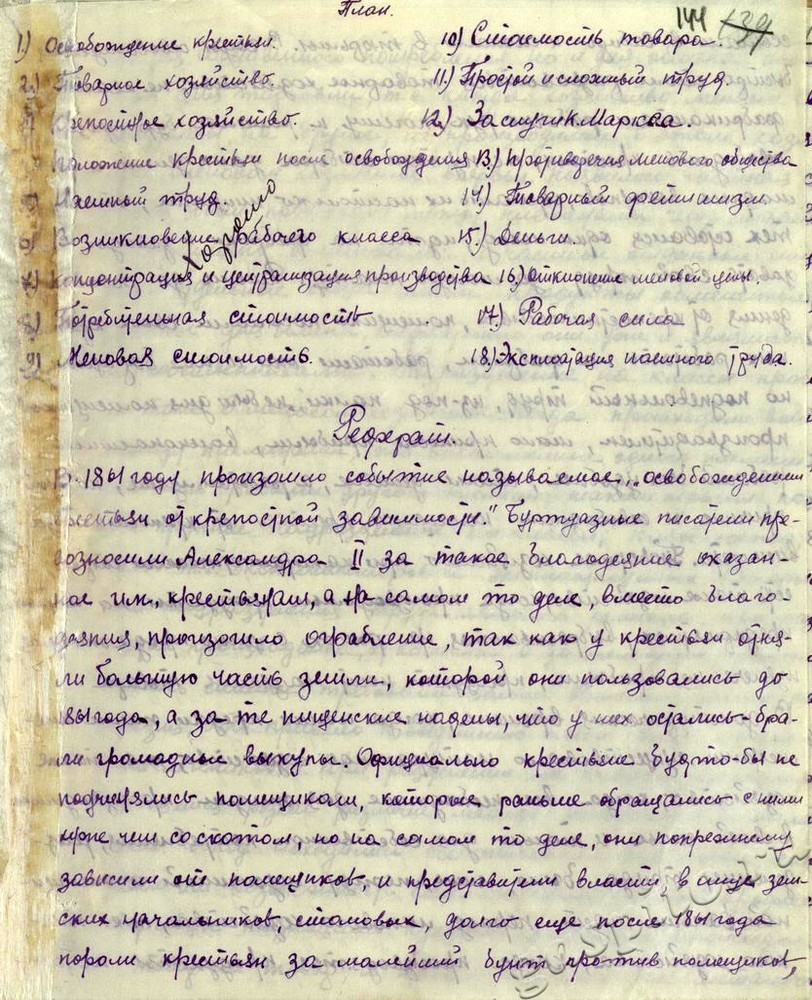 План.
144 139
1.) Освобождение крестьян.
2.) Товарное хозяйство.
Крепостное хозяйство.
Положение крестьян после освобождения
Наемный труд.
Хорошо
Возникновение рабочего класса
7.) Концентрация и централизация производства
8.) Потребительная стоимость
9.) Меновая стоимость.
10.) Стоимость товара.
11.) Простой и сложный труд.
12.) Заслуги К. Маркса.
13.) Противоречия менового общества
14.) Товарный фетишизм.
15.) Деньги.
16.) Отклонение меновой цены.
17.) Рабочая сила
18.) Эксплоатация наемного труда.
Реферат.
В 1861 году произошло событие называемое „освобождением
крестьян от крепостной зависимости." Буржуазные писатели пре-
возносили Александра II за такое благодеяние оказан-
ное им, крестьянам, а на самом то деле, вместо благо-
деяния, произошло ограбление, так как у крестьян отня-
ли большую часть земли, которой они пользовались до
1861 года, а за те нищенские наделы, что у них остались - бра-
ли громадные выкупы. Официально крестьяне будто-бы не
подчинялись помещикам, которые раньше обращались с ними
хуже чем со скотом, но на самом то деле, они попрежнему
зависили от помещиков, и представители власти, в лице зем-
ских начальников, становых, долго еще после 1861 года
пороли крестьян за малейший бунт против помещиков,